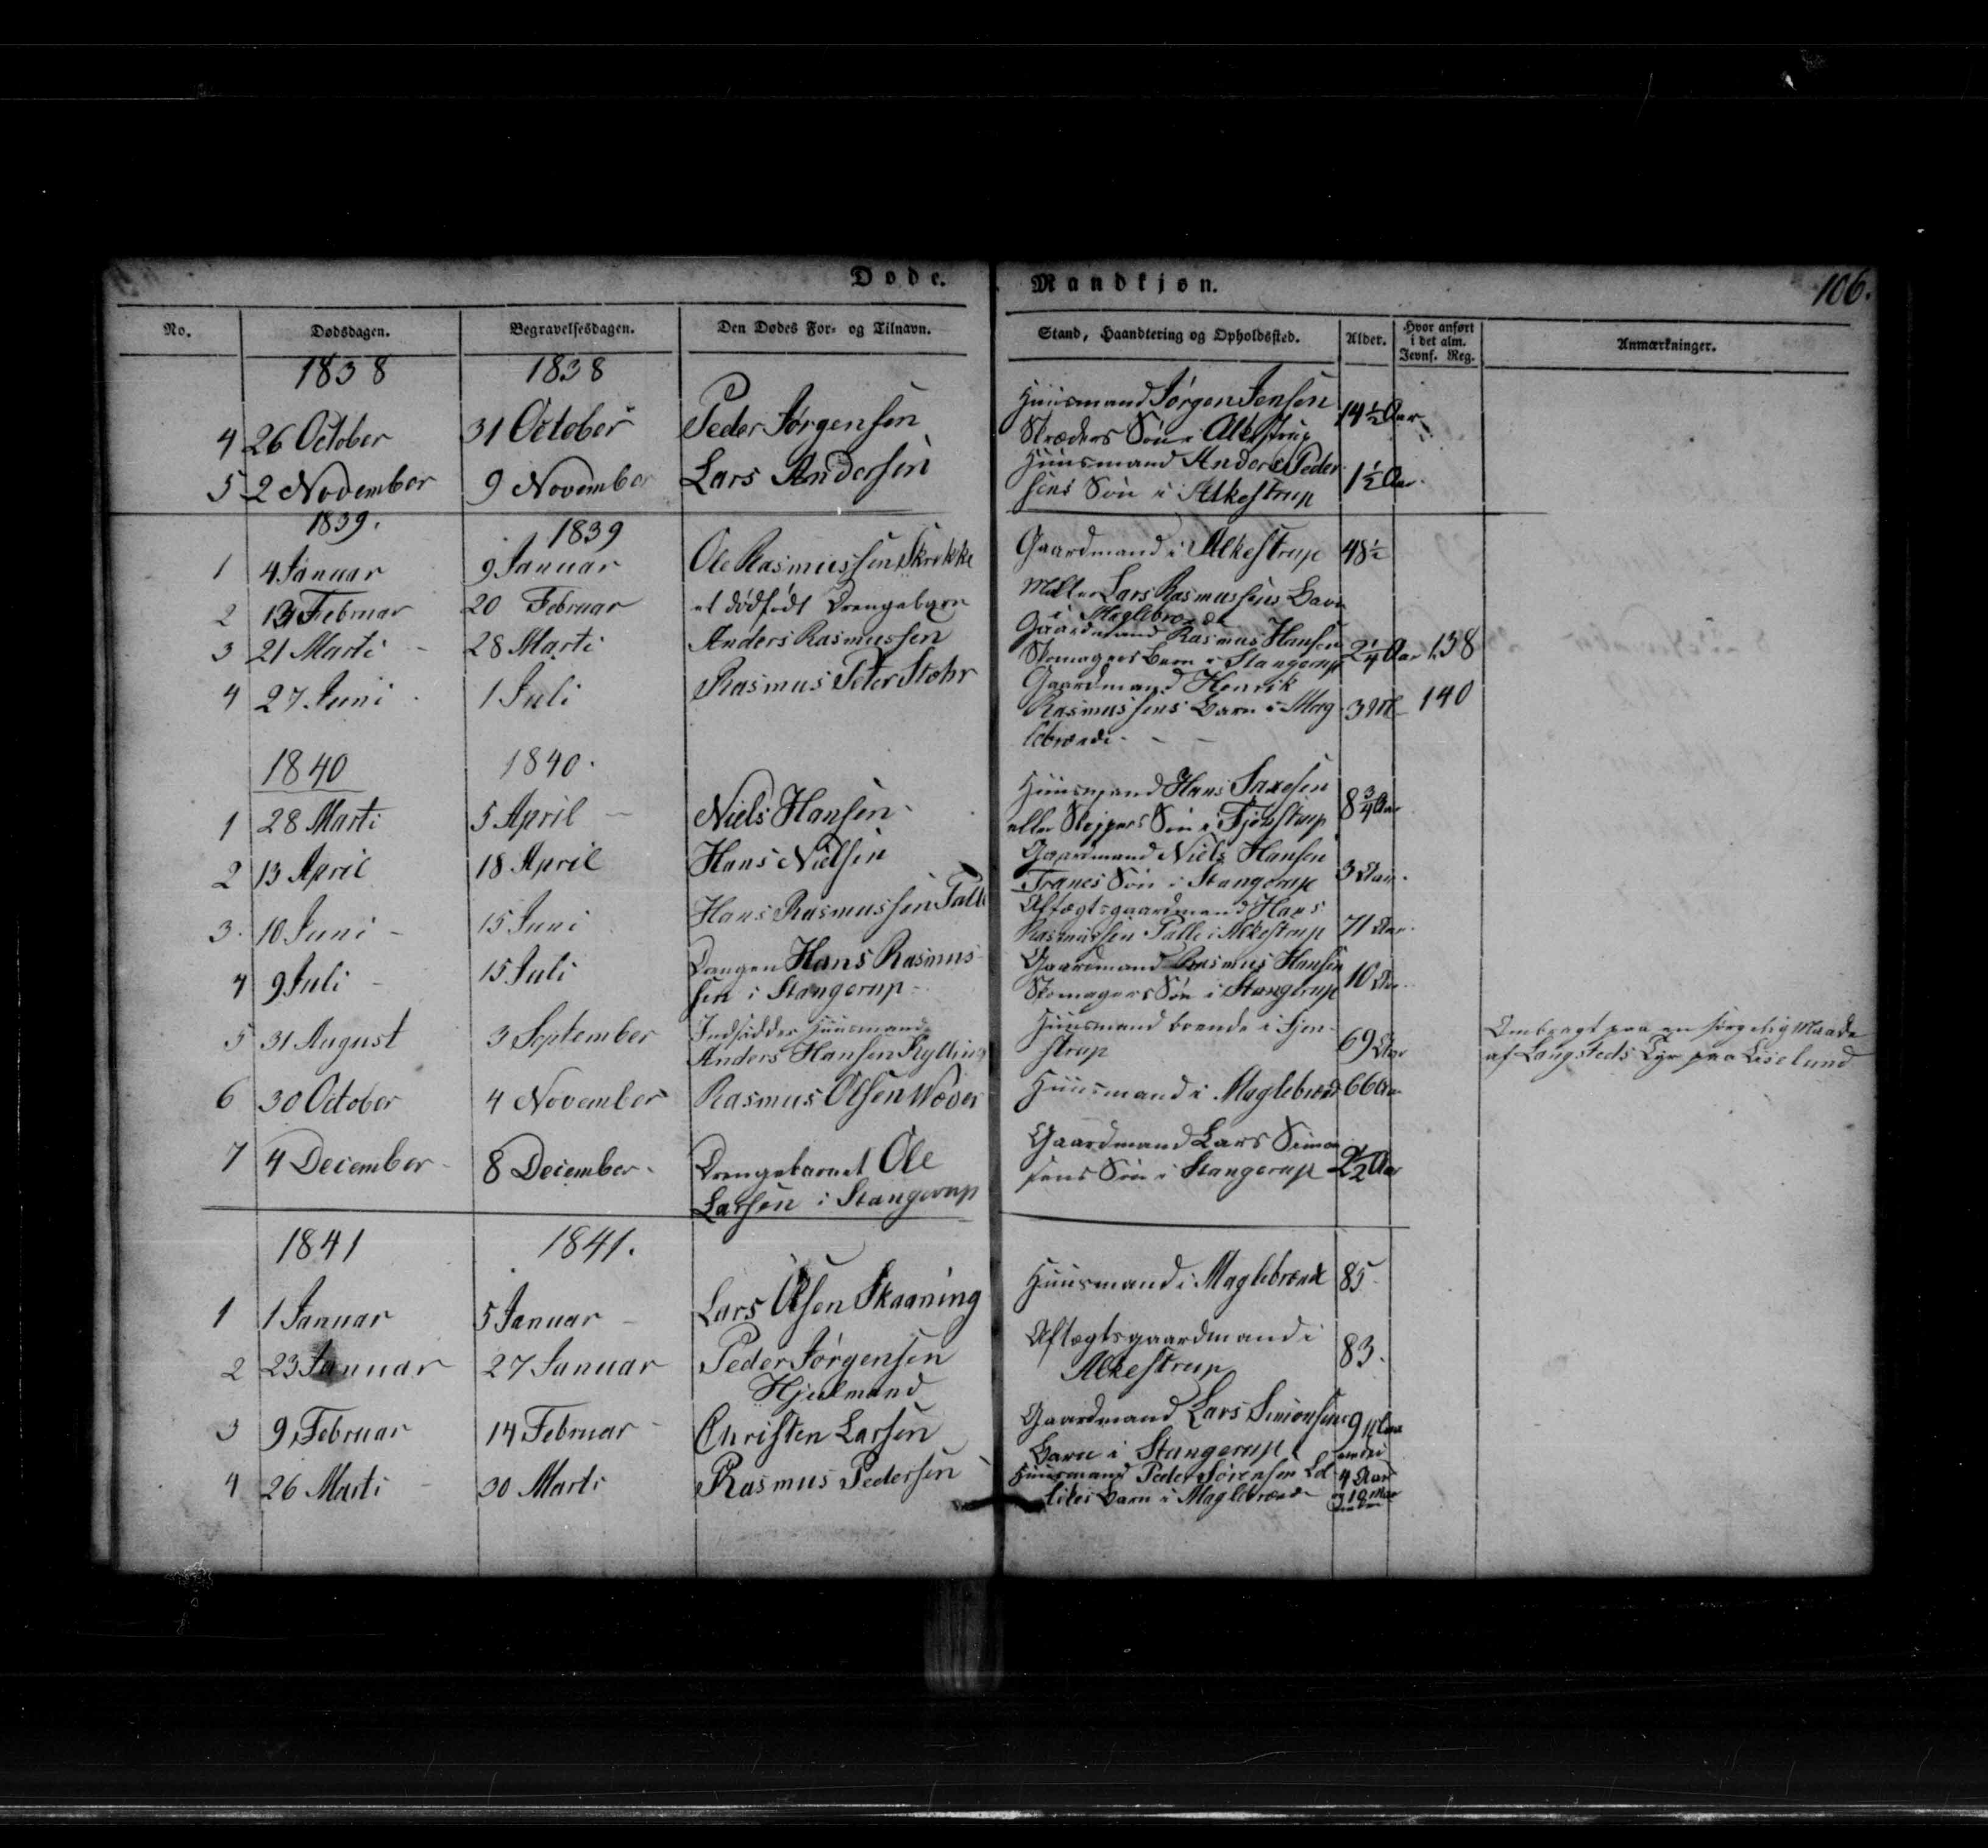 Døde. Mandkjøn. 106.
No. Dødsdagen. Begravelsesdagen. Den Dødes For- og Tilnavn. Stand, Haandtering og Opholdssted. Alder. Hvor anført i det alm. Jevnf. Reg. Anmærkninger.
1838 1838
4 26 October 31 October Peder Jørgensen Huusmand Jørgen Jensen 14½ Aar
Skræders Søn i Alkestrup
5 2 November 9 November Lars Andersen Huusmand Anders Peder- 1½ Aar
sens Søn i Alkestrup
1839. 1839
1 4 Januar 9 Januar Ole Rasmussen Skrokke Gaardmand i Alkestrup 48½
2 13 Februar 20 Februar et dødfødt Drengebarn Møller Lars Rasmussens Barn
i Maglebrænde
3 21 Marti - 28 Marti Anders Rasmussen Gaardmand Rasmus Hansen 2¼ Aar 138
Skomagers Barn i Stangerup
4 27 Juni 1 Juli Rasmus Peter Stohr Gaardmand Henrik
Rasmussens Barn i Mag- 3 140
lebrænde -
1840 1840.
1 28 Marti 5 April - Niels Hansen Huusmand Hans Saxesen 8¾ Aar
eller Skippers Søn i Fjenstrup
2 13 April 18 April Hans Nielsen Gaardmand Niels Hansen
Tranes Søn i Stangerup 3 Aar.
3. 10 Juni - 15 Juni Hans Rasmussen Palle Aftægtsgaardmand Hans
Rasmussen Palle i Alkestrup 71 Aar.
4 9 Juli - 15 Juli Drengen Hans Rasmus- Gaardmand Rasmus Hansen 10 Aar.
sen i Stangerup - Skomagers Søn i Stangerup
5 31 August 3 September Indsidder Huusmand Huusmand boende i Fjen-
Anders Hansen Kylling strup 69 Aar
Ombragt paa en sørgelig Maade
af Langsteds Tyr paa Liselund
6 30 October 4 November Rasmus Olsen Wæver Huusmand i Maglebrænde 66 Aar
7 4 December - 8 December - Drengebarnet Ole Gaardmand Lars Simon
Larsen i Stangerup sens Søn i Stangerup 2½ Aar
1841 1841.
1 1 Januar 5 Januar - Lars Olsen Skaaning Huusmand i Maglebrænde 85
2 23 Januar 27 Januar Peder Jørgensen Aftægtsgaardmand i 83.
Hjulmand Alkestrup
3 9 Februar 14 Februar - Christen Larsen Gaardmand Lars Simonsens 9
Barn i Stangerup
4 26 Marti - 30 Marti Rasmus Pedersen Huusmand Peder Sørensen 4 Aar
Barn i Maglebrænde og 10 Maa